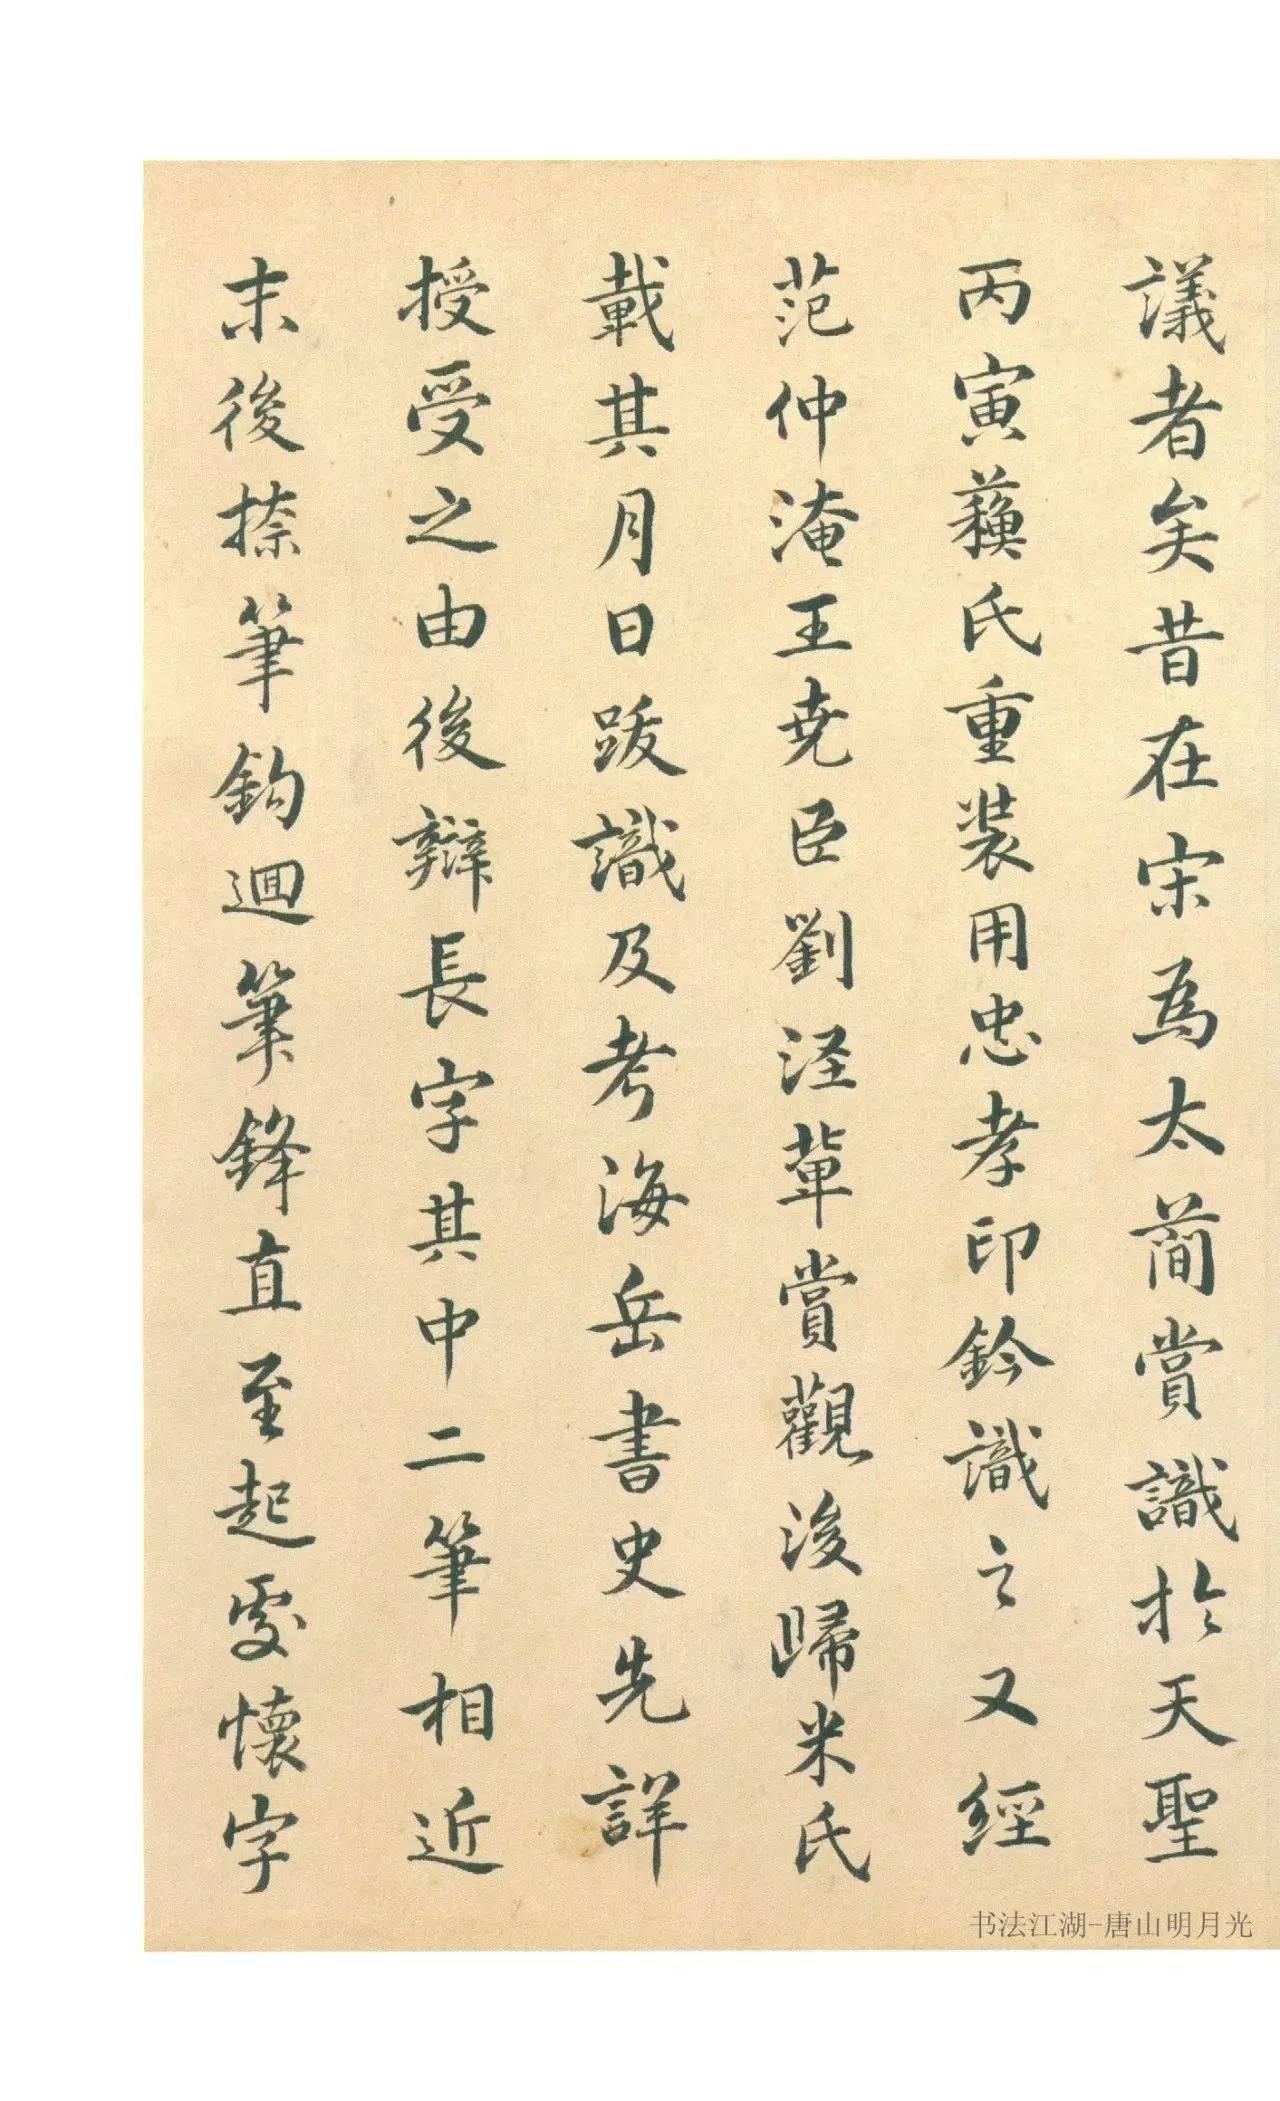 議者矣昔在宋為太簡賞識於天聖
丙寅蘓氏重装用忠孝印鈐識之又經
范仲淹王尭臣劉涇軰賞觀後歸米氏
載其月日跋識及考海岳書史先詳
授受之由後辯長字其中二筆相近
末後捺筆鈎迴筆鋒直至起處懷字
书法江湖-唐山明月光